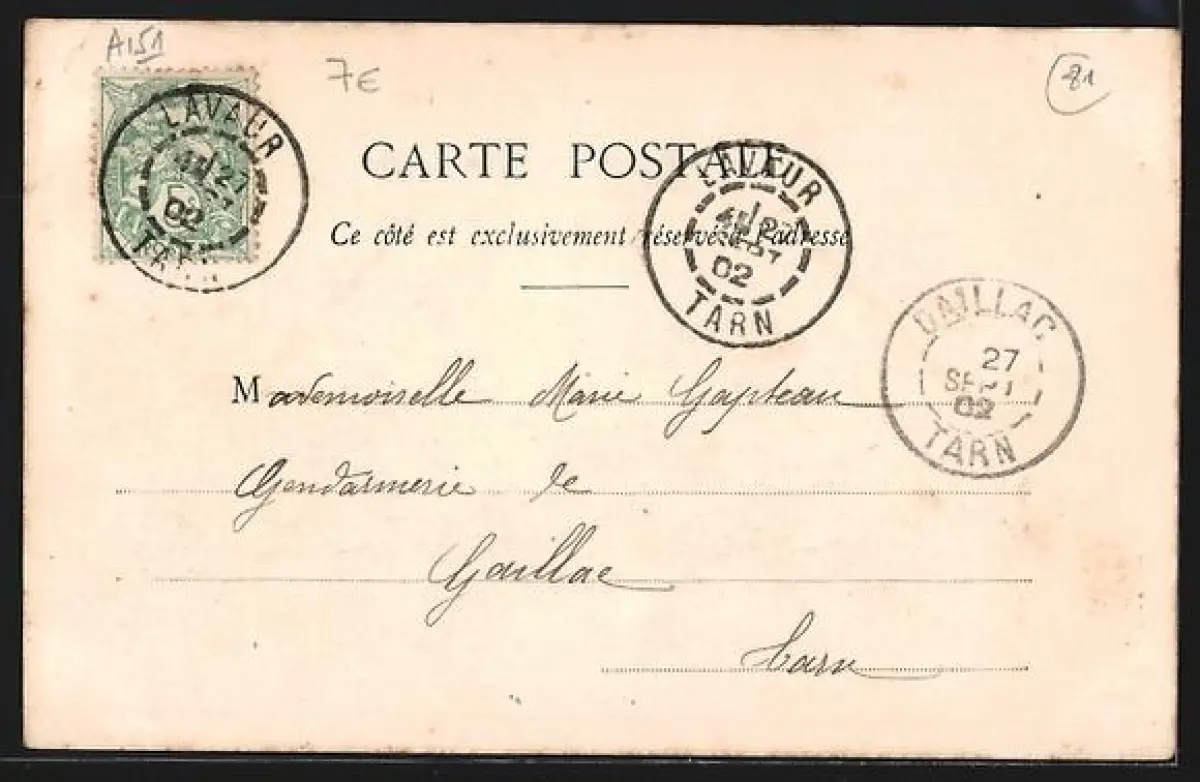 A151
7€
81
LAVAUR
02
TARN
CARTE POSTALE
LAVAUR
02
TARN
Ce côté est exclusivement réservé à l'adresse
GAILLAC
27
SEPT
02
TARN
Mademoiselle Marie
Gendarmerie de
Gaillac
Tarn